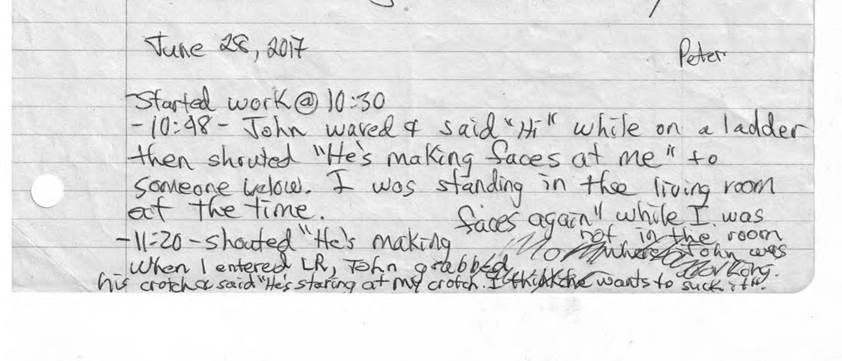 June 28, 2017
Peter
Started work @ 10:30
- 10:48 - John waved & said "Hi" while on a ladder
then shouted "He's making faces at me" to
someone below. I was standing in the living room
at the time.
- 11:20 - shouted "He's making faces again" while I was
not in the room
where John was
working.
When I entered LR, John grabbed
his crotch & said "He's staring at my crotch. I think he wants to suck it".